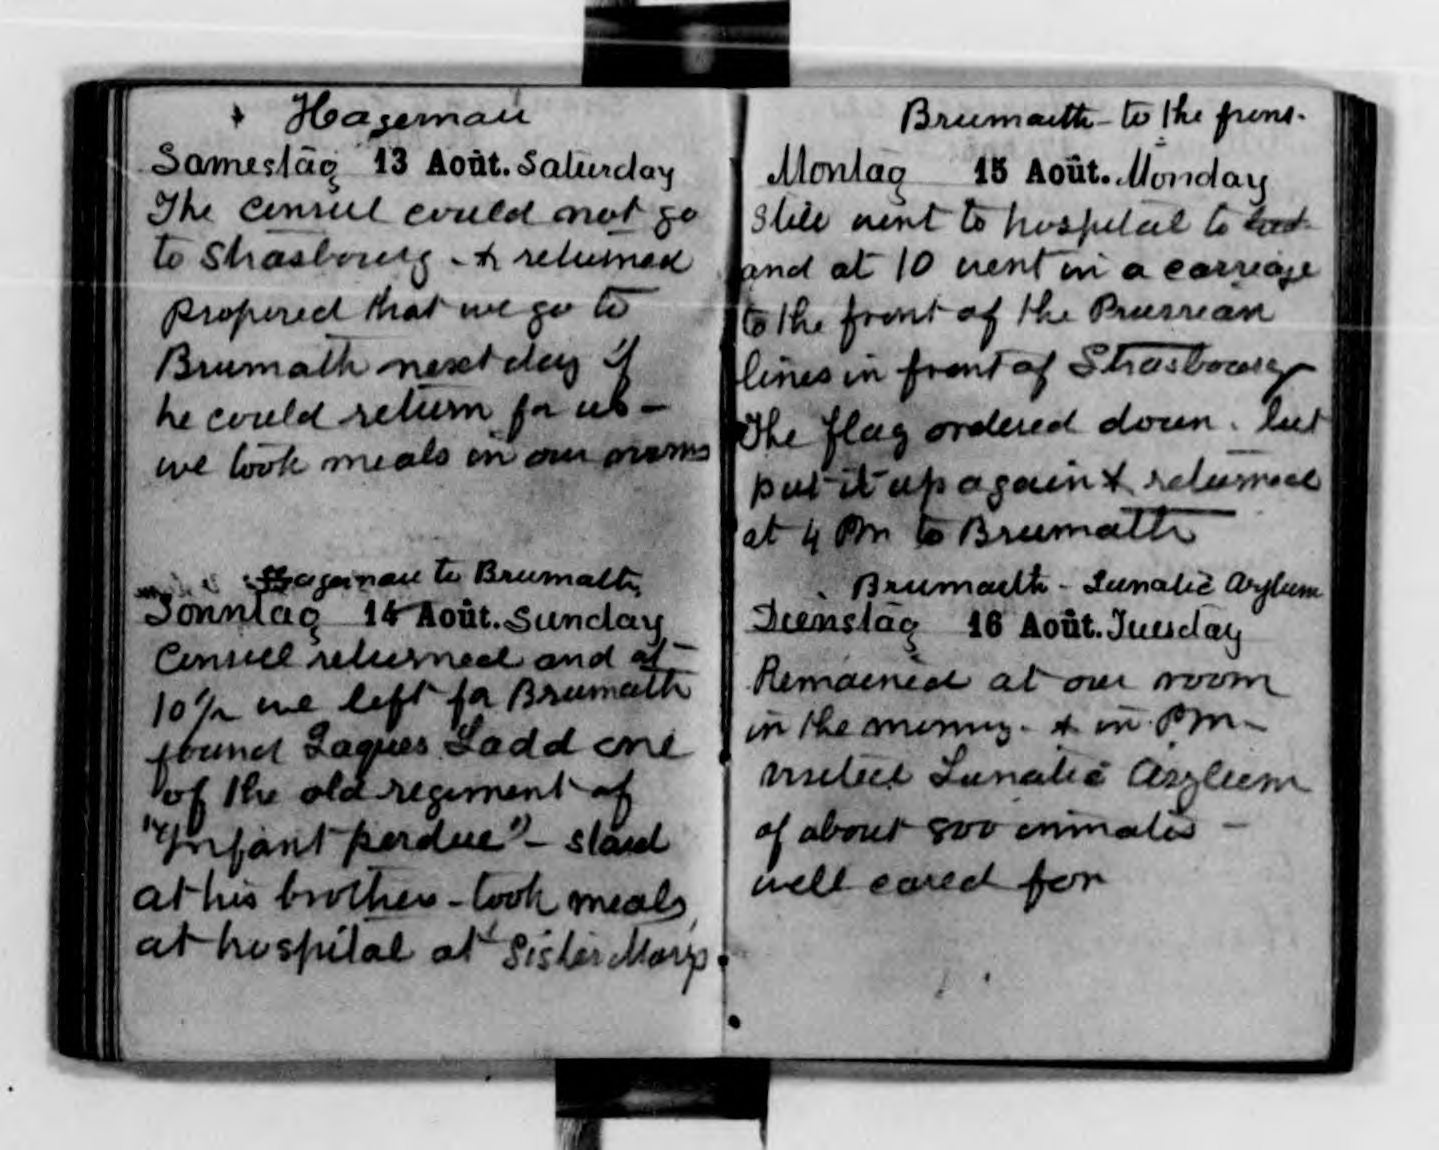 Hagernau
Samestäg 13 Août. Saturday
The consul could not go
to Strasbourg - & returned
propored that we go to
Brumath next day if
he could return for us -
we took meals in our rooms
Hagernau to Brumath
Sonntag 14 Août. Sunday
Consul returned and at
10 1/2 we left for Brumath
found Jaques Ladd one
of the old regiment of
"Infant perdue" - staid
at his brothers - took meals
at hospital at Sister Marys
Brumath - to the front.
Montag 15 Août. Monday
Still went to hospital to eat
and at 10 went in a carriage
to the front of the Prussian
lines in front of Strasbourg
The flag ordered down. but
put it up again & returned
at 4 PM to Brumath
Brumath - Lunatic Asylum
Dienstäg 16 Août. Tuesday
Remained at our room
in the morning - & in PM -
visited Lunatic Asylum
of about 800 inmates -
well cared for